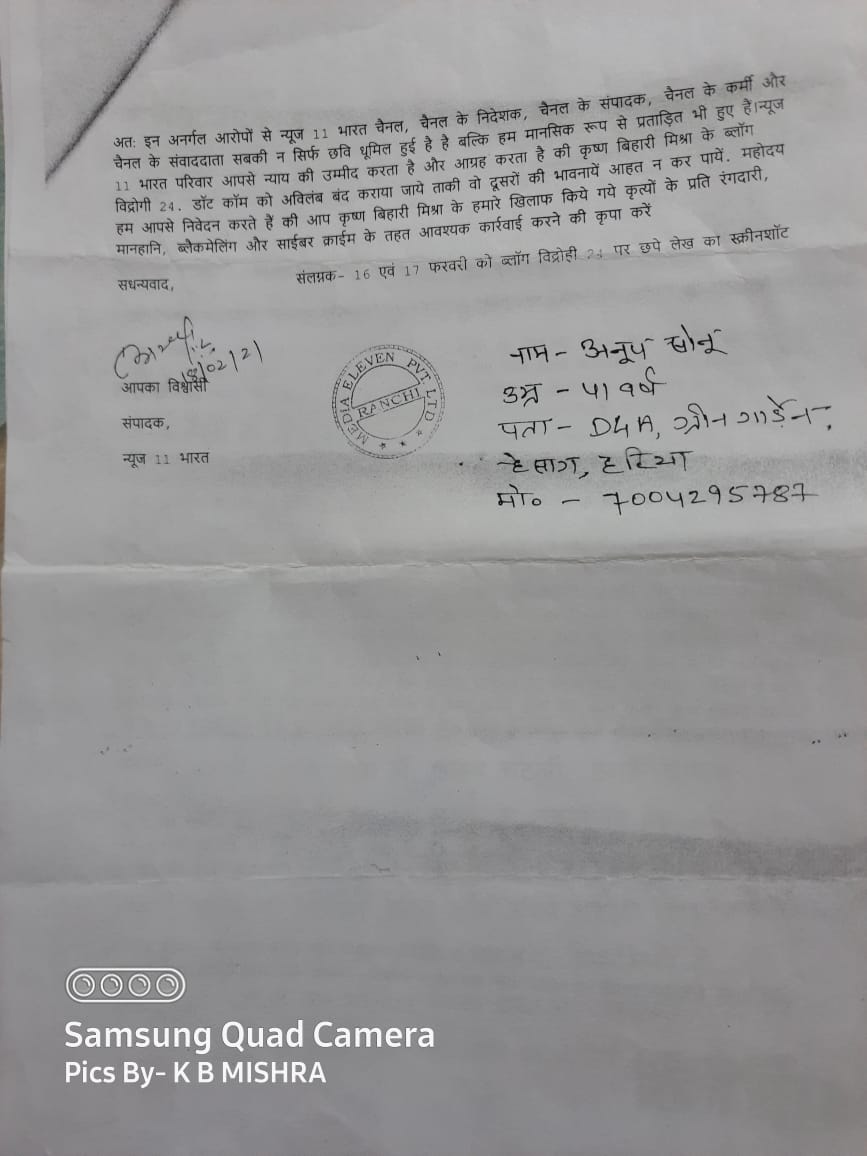 अतः इन अनर्गल आरोपों से न्यूज 11 भारत चैनल, चैनल के निदेशक, चैनल के संपादक, चैनल के कर्मी और
चैनल के संवाददाता सबकी न सिर्फ छवि धूमिल हुई है है बल्कि हम मानसिक रूप से प्रताड़ित भी हुए हैं।न्यूज
11 भारत परिवार आपसे न्याय की उम्मीद करता है और आग्रह करता है की कृष्ण बिहारी मिश्रा के ब्लॉग
विद्रोगी 24. डॉट कॉम को अविलंब बंद कराया जाये ताकी वो दूसरों की भावनायें आहत न कर पायें. महोदय
हम आपसे निवेदन करते हैं की आप कृष्ण बिहारी मिश्रा के हमारे खिलाफ किये गये कृत्यों के प्रति रंगदारी,
मानहानि, ब्लैकमेलिंग और साईबर क्राईम के तहत आवश्यक कार्रवाई करने की कृपा करें
संलग्नक- 16 एवं 17 फरवरी को ब्लॉग विद्रोही 24 पर छपे लेख का स्क्रीनशॉट
सधन्यवाद,
18/02/21
आपका विश्वासी
संपादक,
न्यूज 11 भारत
MEDIA ELEVEN PVT. LTD
RANCHI
नाम - अनूप सोनू
उम्र - 41 वर्ष
पता - D4A, ग्रीन गार्डेन,
हेसाग, हटिया
मो० - 7004295787
Samsung Quad Camera
Pics By- K B MISHRA